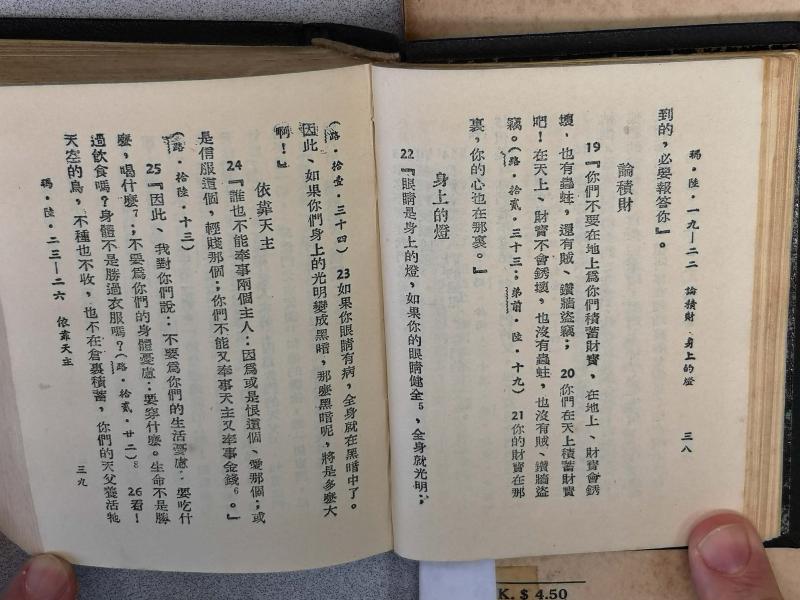 瑪・陸・一九—二二　論積財　身上的燈　三八
到的，必要報答你』。
論積財
19『你們不要在地上爲你們積蓄財寶，在地上、財寶會銹
壞，也有蟲蛀，還有賊、鑽牆盜竊； 20你們在天上積蓄財寶
吧！在天上、財寶不會銹壞，也沒有蟲蛀，也沒有賊、鑽牆盜
竊。（路・拾貳・三十三；弟前・陸・十九） 21你的財寶在那
裏，你的心也在那裏。』
身上的燈
22『眼睛是身上的燈，如果你的眼睛健全5，全身就光明；
23如果你眼睛有病，全身就在黑暗中了。
（路・拾壹・三十四）
因此、如果你們身上的光明變成黑暗，那麼黑暗呢，將是多麼大
啊！』
依靠天主
24『誰也不能奉事兩個主人：因爲或是恨這個、愛那個；或
是信服這個，輕賤那個；你們不能又奉事天主又奉事金錢6。』
（路・拾陸・十三）
25『因此、我對你們說：不要爲你們的生活憂慮：要吃什
麼，喝什麼7；不要爲你們的身體憂慮：要穿什麼。生命不是勝
過飲食嗎？身體不是勝過衣服嗎？（路・拾貳・廿二）8 26看！
天空的鳥，不種也不收，也不在倉裏積蓄，你們的天父養活牠
瑪・陸・二三—二六　依靠天主　三九
K. $ 4.50